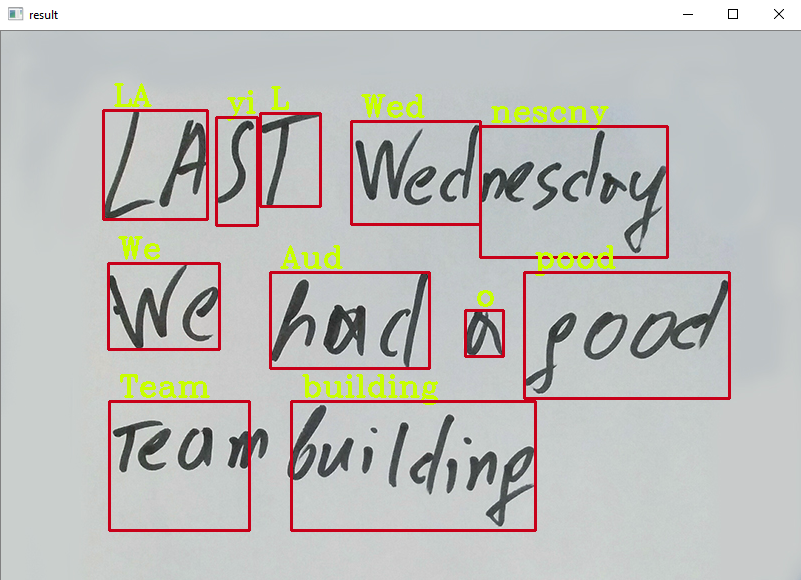 result
LA yi L Wed nescny
LAST Wednesday
We Aud o pood
We had a good
Team building
Team building